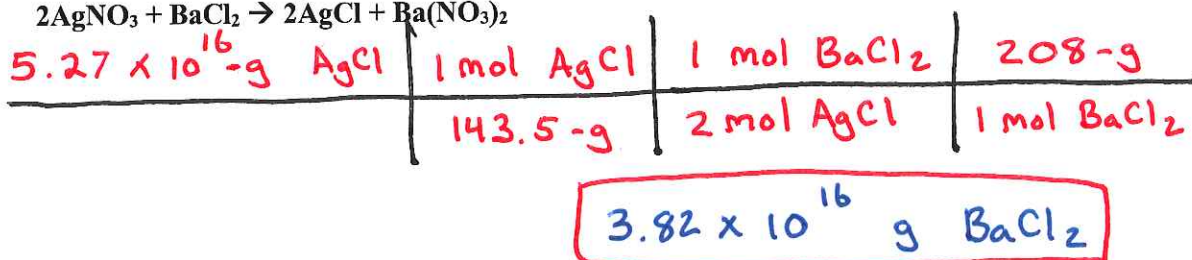 2AgNO₃ + BaCl₂ → 2AgCl + Ba(NO₃)₂
5.27 x 10¹⁶-g AgCl | 1 mol AgCl | 1 mol BaCl₂ | 208-g
143.5-g | 2 mol AgCl | 1 mol BaCl₂
3.82 x 10¹⁶ g BaCl₂